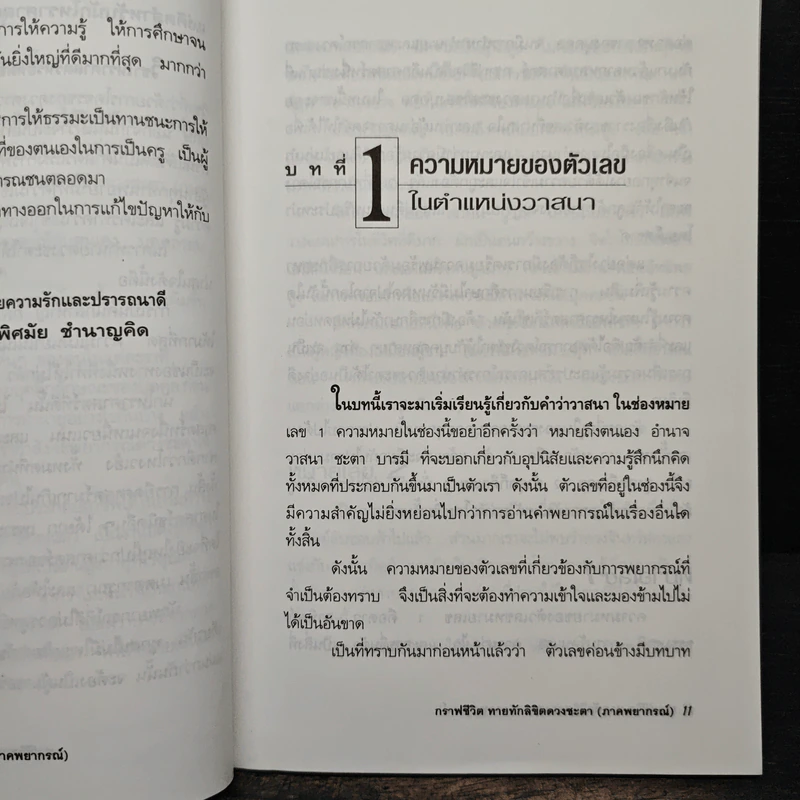 การให้ความรู้ ให้การศึกษาจน
ยิ่งใหญ่ที่ดีมากที่สุด มากกว่า
การให้ธรรมะเป็นทานชนะการให้
ที่ของตนเองในการเป็นครู เป็นผู้
ารณชนตลอดมา
ทางออกในการแก้ไขปัญหาให้กับ
ยความรักและปรารถนาดี
พิศมัย ชำนาญคิด
าคพยากรณ์)
บทที่ 1 ความหมายของตัวเลข
ในตำแหน่งวาสนา
ในบทนี้เราจะมาเริ่มเรียนรู้เกี่ยวกับคำว่าวาสนา ในช่องหมาย
เลข 1 ความหมายในช่องนี้ขอย้ำอีกครั้งว่า หมายถึงตนเอง อำนาจ
วาสนา ชะตา บารมี ที่จะบอกเกี่ยวกับอุปนิสัยและความรู้สึกนึกคิด
ทั้งหมดที่ประกอบกันขึ้นมาเป็นตัวเรา ดังนั้น ตัวเลขที่อยู่ในช่องนี้จึง
มีความสำคัญไม่ยิ่งหย่อนไปกว่าการอ่านคำพยากรณ์ในเรื่องอื่นใด
ทั้งสิ้น
ดังนั้น ความหมายของตัวเลขที่เกี่ยวข้องกับการพยากรณ์ที่
จำเป็นต้องทราบ จึงเป็นสิ่งที่จะต้องทำความเข้าใจและมองข้ามไปไม่
ได้เป็นอันขาด
เป็นที่ทราบกันมาก่อนหน้าแล้วว่า ตัวเลขค่อนข้างมีบทบาท
กราฟชีวิต ทายทักลิขิตดวงชะตา (ภาคพยากรณ์) 11